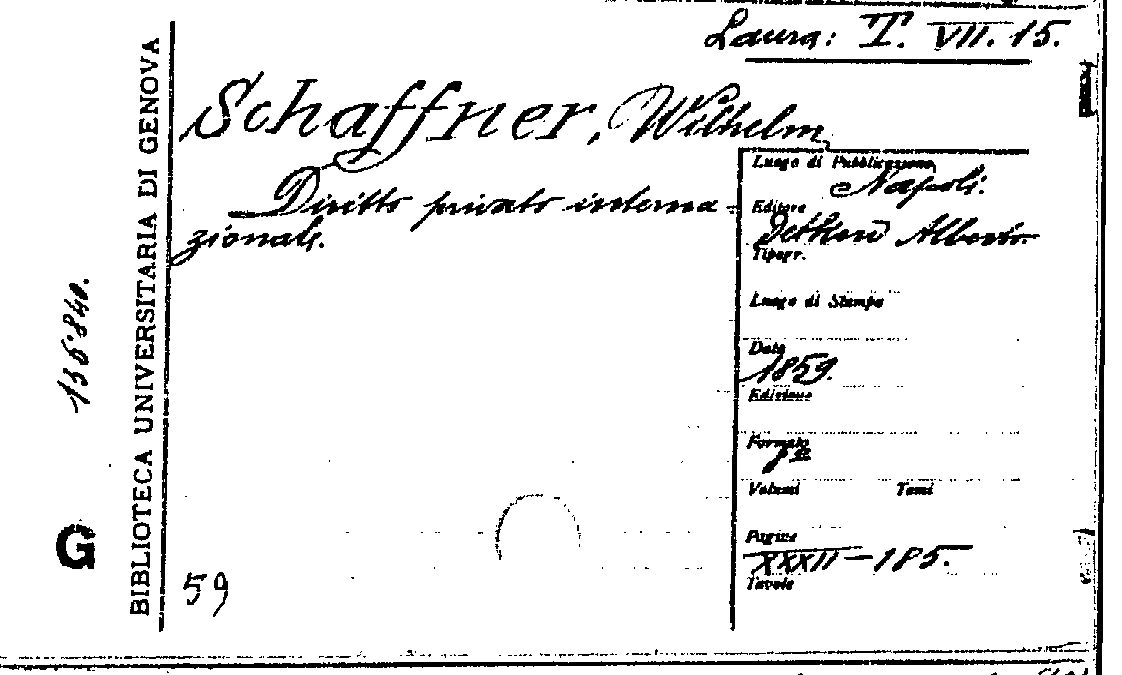 Laura: T. VII. 15.
Schaffner, Wilhelm
Diritto privato interna-
zionale.
Luogo di Pubblicazione
Napoli.
Editore
Detken Alberto
Tipogr.
Luogo di Stampa
Data
1859.
Edizione
Formato
8º
Volumi Tomi
Pagine
XXXII-185.
Tavole
59
BIBLIOTECA UNIVERSITARIA DI GENOVA
G